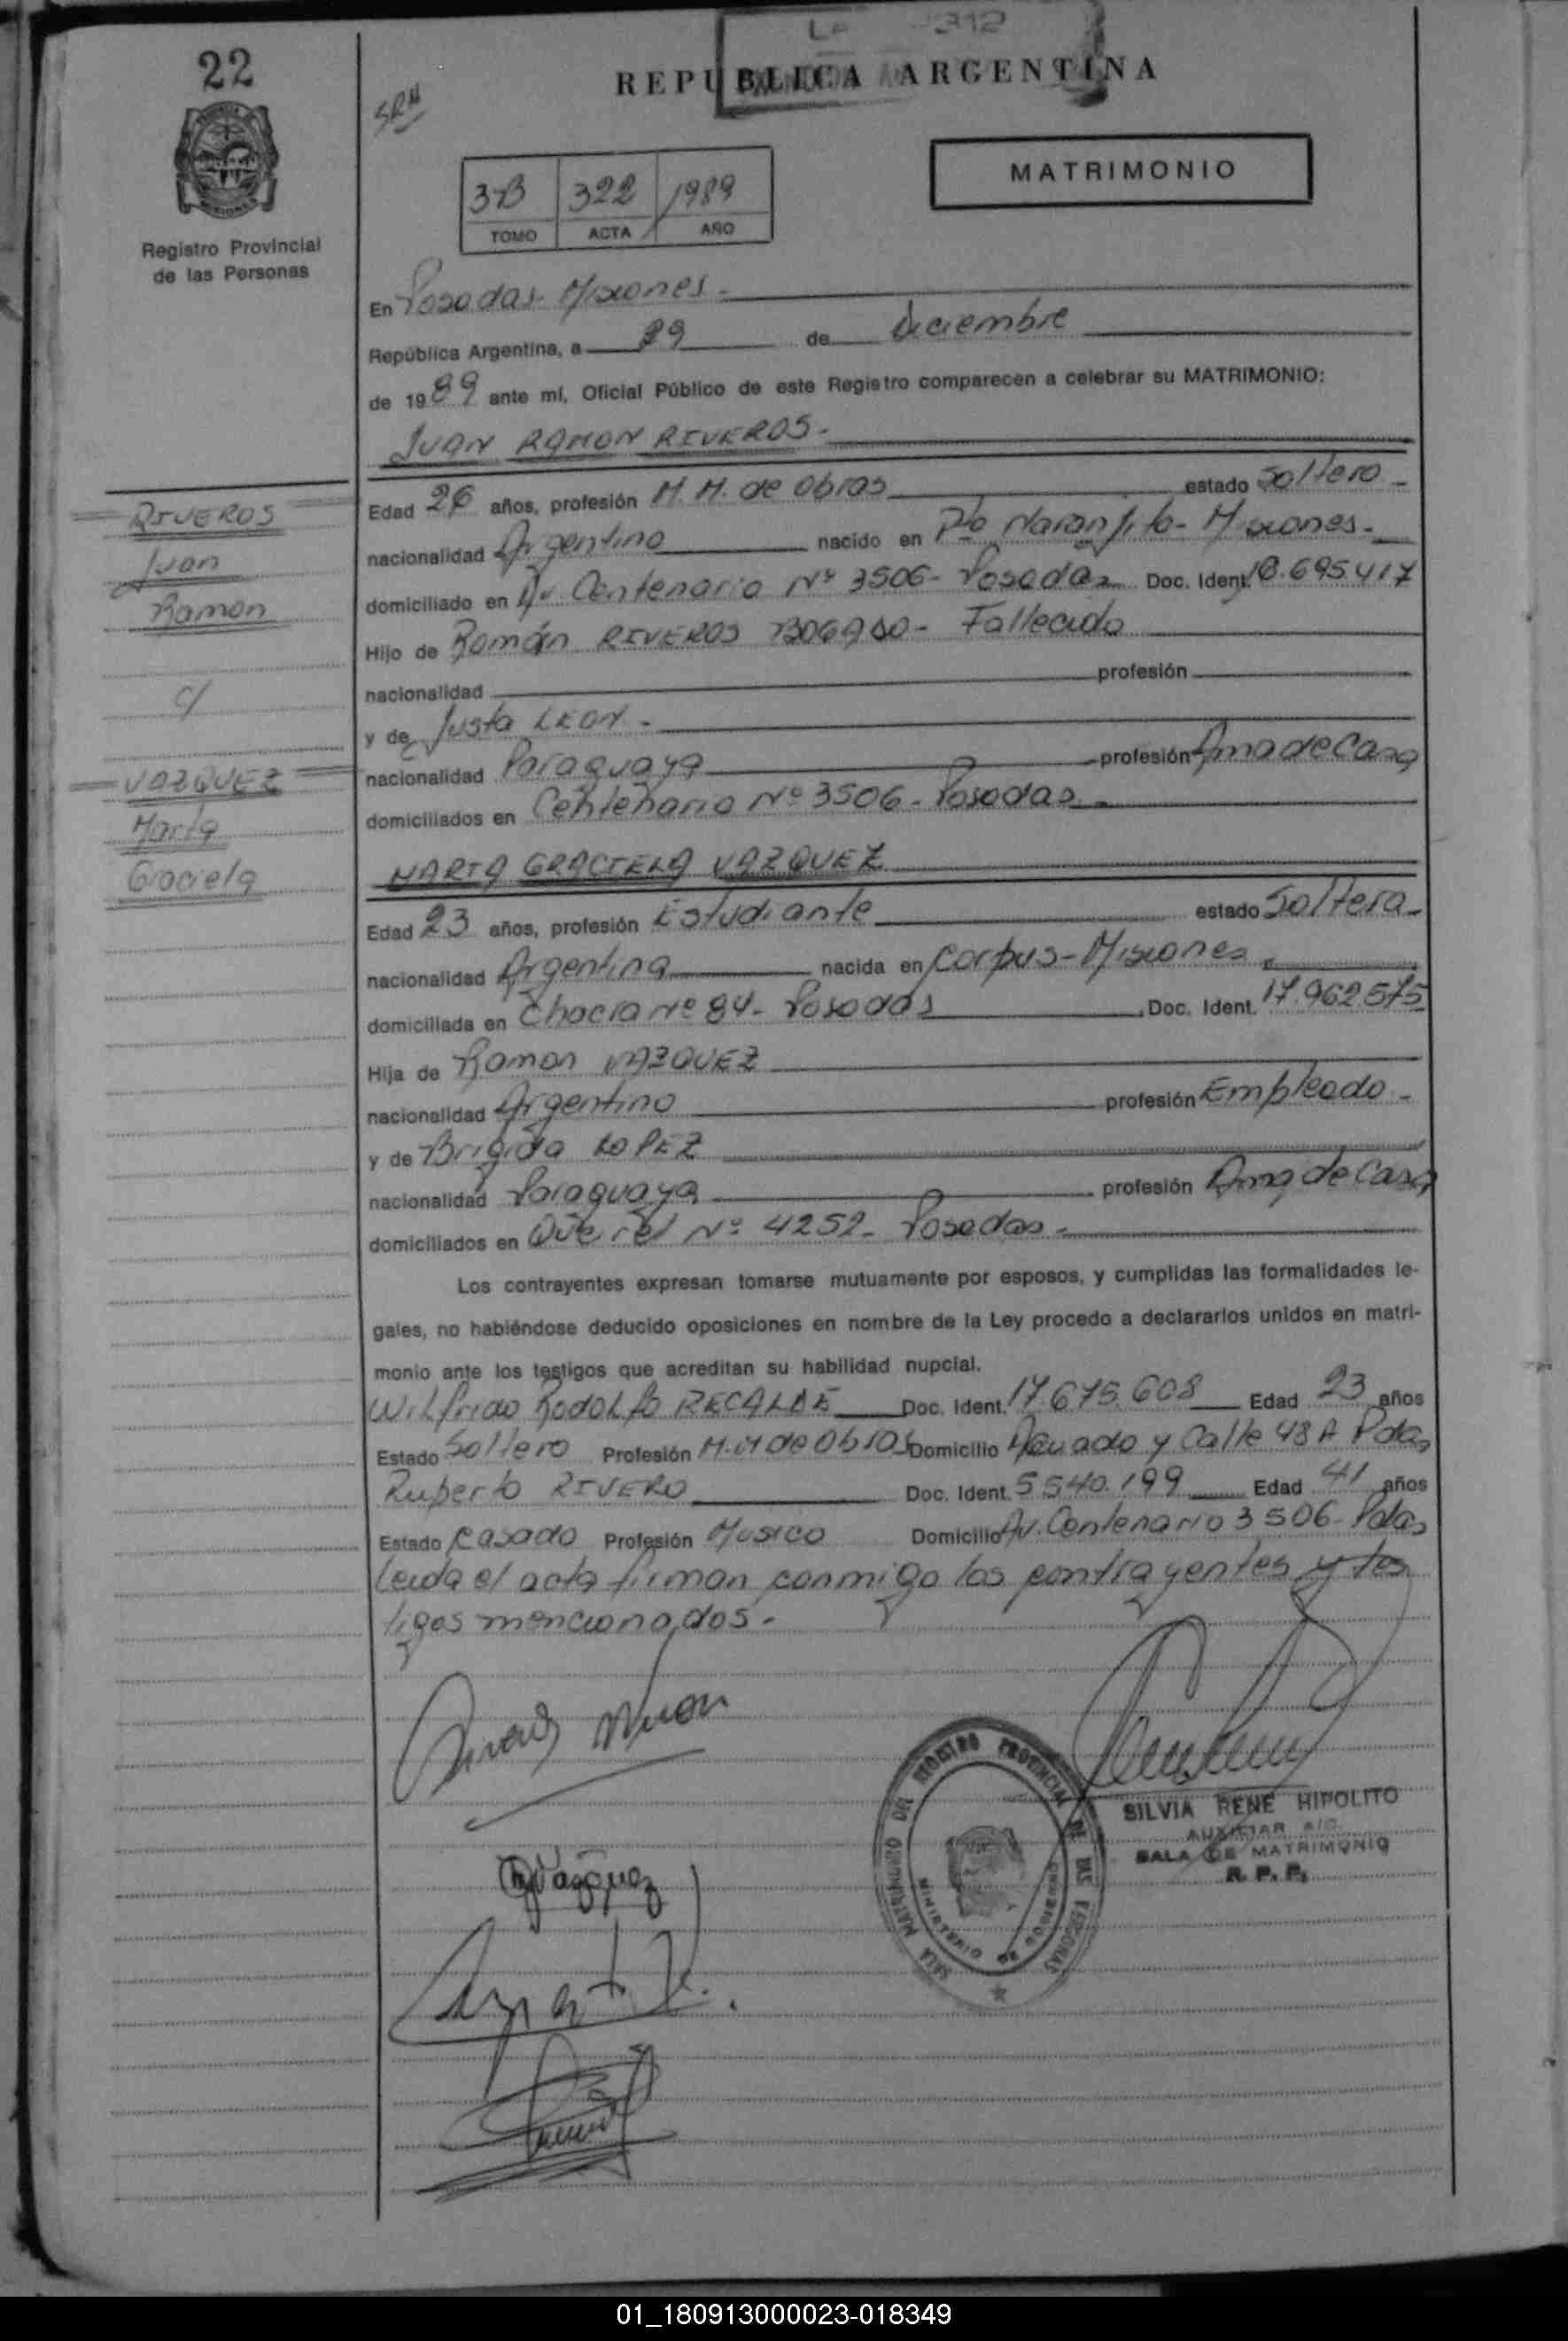 22
REPUBLICA ARGENTINA
SRH
MATRIMONIO
3-B 322 1989
TOMO ACTA AÑO
Registro Provincial
de las Personas
En Posadas- Misiones.-
República Argentina, a 29 de Diciembre
de 1989 ante mí, Oficial Público de este Registro comparecen a celebrar su MATRIMONIO:
JUAN RAMON RIVEROS.-
RIVEROS
Juan
Ramon
c/
VAZQUEZ
Marta
Graciela
Edad 26 años, profesión M. M. de Obras estado Soltero-
nacionalidad Argentino nacido en Pto Naranjito- Misiones-
domiciliado en Av Centenario Nº 3506- Posadas Doc. Ident. 16.695.417
Hijo de Román RIVEROS BOGADO- Fallecido
nacionalidad profesión
y de Justa LEON.-
nacionalidad Paraguaya profesión Ama de Casa
domiciliados en Centenario Nº 3506- Posadas-
MARTA GRACIELA VAZQUEZ
Edad 23 años, profesión Estudiante estado Soltera-
nacionalidad Argentina nacida en Corpus-Misiones
domiciliada en Chacra Nº 84- Posadas Doc. Ident. 17.962.575
Hija de Ramon VAZQUEZ
nacionalidad Argentino profesión Empleado-
y de Brigida LOPEZ
nacionalidad Paraguaya profesión Ama de Casa
domiciliados en Queirel Nº 4252- Posadas-
Los contrayentes expresan tomarse mutuamente por esposos, y cumplidas las formalidades le-
gales, no habiéndose deducido oposiciones en nombre de la Ley procedo a declararlos unidos en matri-
monio ante los testigos que acreditan su habilidad nupcial.
Wilfrido Rodolfo RECALDE Doc. Ident. 17.675.608 Edad 23 años
Estado Soltero Profesión M.M de Obras Domicilio y Calle 48 A Pdas
Ruperto RIVERO Doc. Ident. 5540.199 Edad 41 años
Estado Casado Profesión Musico Domicilio Av. Centenario 3506- Pdas
Leida el acta firman conmigo los contrayentes y tes
tigos mencionados.-
SILVIA RENE HIPOLITO
AUXILIAR A/C
SALA DE MATRIMONIO
R. P. P.
SALA MATRIMONIO DEL REGISTRO PROVINCIAL DE LAS PERSONAS
MINISTERIO DE GOBIERNO
Vazquez
01_180913000023-018349